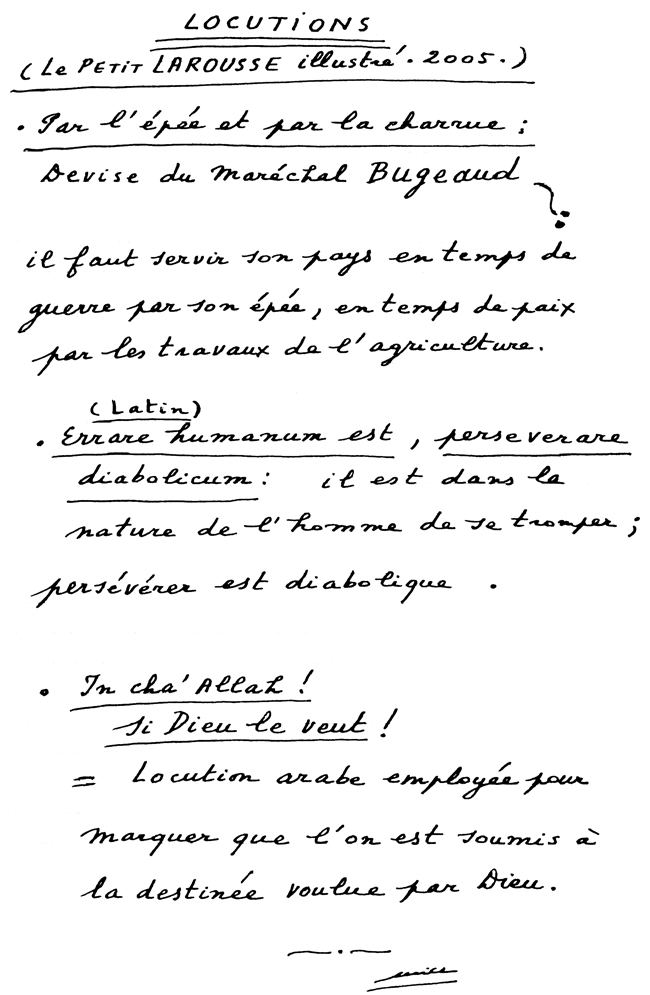 LOCUTIONS
(Le PETIT LAROUSSE illustré. 2005.)
• Par l'épée et par la charrue ;
Devise du Maréchal Bugeaud
il faut servir son pays en temps de
guerre par son épée, en temps de paix
par les travaux de l'agriculture.
(Latin)
• Errare humanum est, perseverare
diabolicum : il est dans la
nature de l'homme de se tromper ;
persévérer est diabolique .
• In cha' Allah !
Si Dieu le veut !
= Locution arabe employée pour
marquer que l'on est soumis à
la destinée voulue par Dieu.